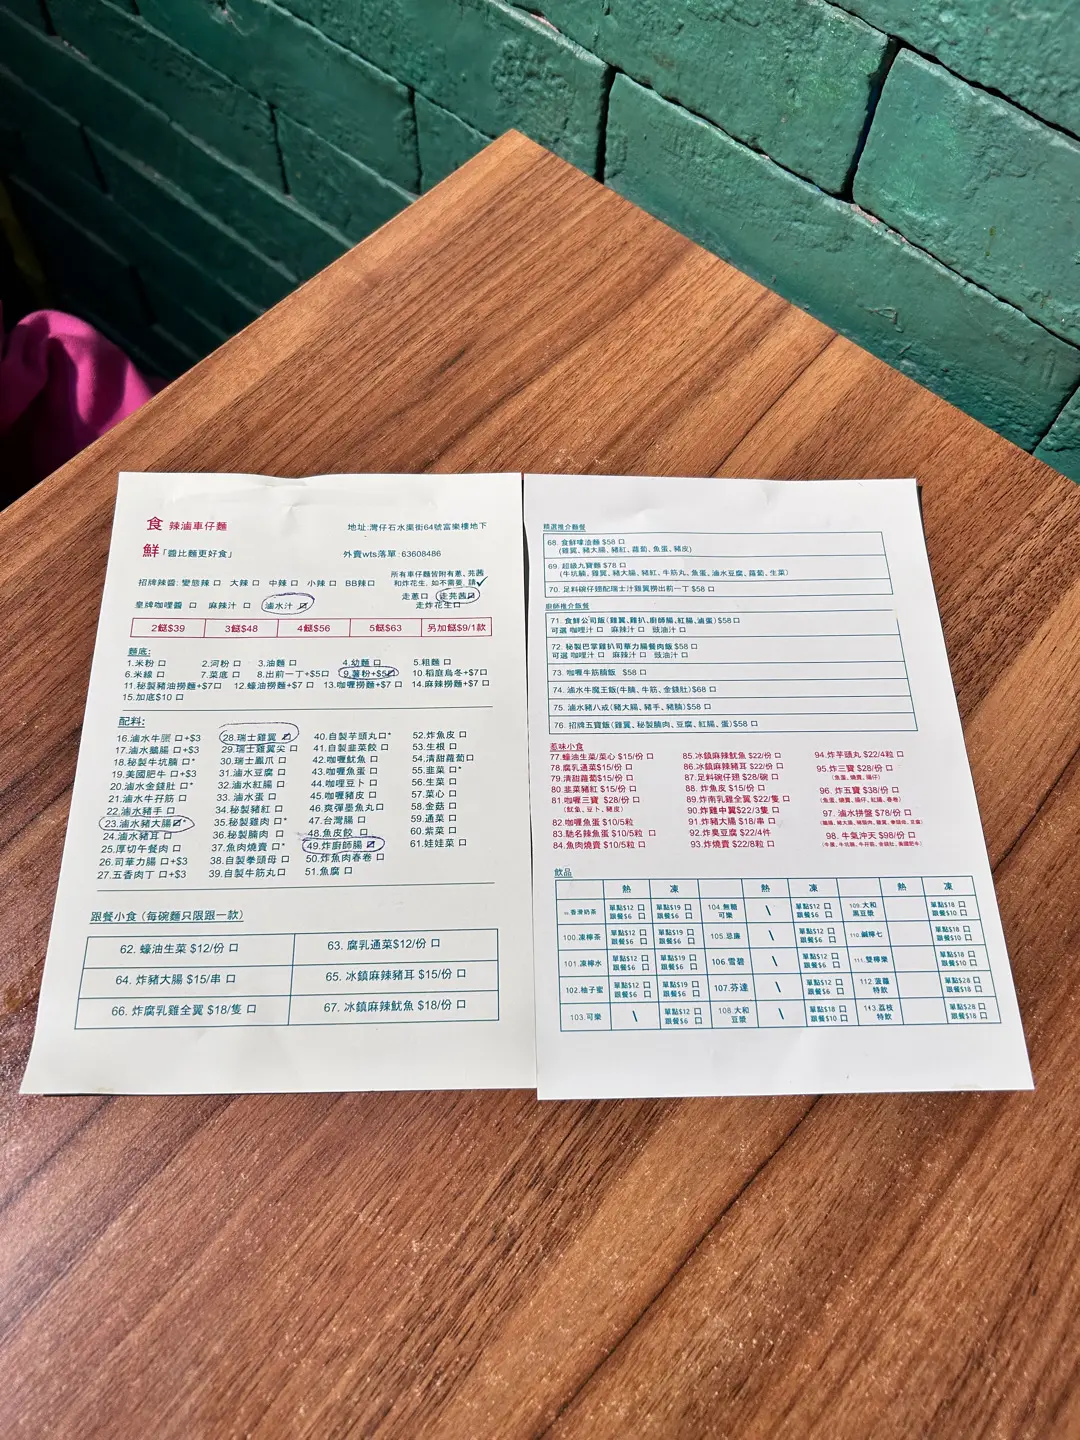 食 辣滷車仔麵 地址:灣仔石水渠街64號富樂樓地下
鮮「醬比麵更好食」 外賣wts落單:63608486
招牌辣醬: 變態辣 口 大辣 口 中辣 口 小辣 口 BB辣口
所有車仔麵皆附有蔥、芫茜
和炸花生. 如不需要. 請✓
皇牌咖哩醬 口 麻辣汁 口 滷水汁 ☑
走蔥口 走芫茜☑
走炸花生口
2餸$39 3餸$48 4餸$56 5餸$63 另加餸$9/1款
麵底:
1.米粉 口 2.河粉 口 3.油麵 口 4.幼麵 口 5.粗麵 口
6.米線 口 7.菜底 口 8.出前一丁+$5口 9.薯粉+$5☑ 10.稻庭烏冬+$7口
11.秘製豬油撈麵+$7口 12.蠔油撈麵+$7 口 13.咖喱撈麵+$7 口 14.麻辣撈麵+$7 口
15.加底$10 口
配料:
16.滷水牛𦟌 口+$3
17.滷水鵝腸 口+$3
18.秘製牛坑腩 口*
19.美國肥牛 口+$3
20.滷水金錢肚 口*
21.滷水牛孖筋 口
22.滷水豬手 口
23.滷水豬大腸☑*
24.滷水豬耳 口
25.厚切午餐肉 口
26.司華力腸 口+$3
27.五香肉丁 口+$3
28.瑞士雞翼 ☑
29.瑞士雞翼尖 口
30.瑞士鳳爪 口
31.滷水豆腐 口
32.滷水紅腸 口
33.滷水蛋 口
34.秘製豬紅 口
35.秘製雞肉 口*
36.秘製腩肉 口
37.魚肉燒賣 口*
38.自製拳頭母 口
39.自製牛筋丸口
40.自製芋頭丸口*
41.自製韭菜餃 口
42.咖喱魷魚 口
43.咖喱魚蛋 口
44.咖哩豆卜 口
45.咖喱豬皮 口
46.爽彈墨魚丸口
47.台灣腸 口
48.魚皮餃 口
49.炸廚師腸 ☑
50.炸魚肉春卷 口
51.魚腐 口
52.炸魚皮 口
53.生根 口
54.清甜蘿蔔口
55.韭菜 口*
56.生菜 口
57.菜心 口
58.金菇 口
59.通菜 口
60.紫菜 口
61.娃娃菜 口
跟餐小食 (每碗麵只限跟一款)
62. 蠔油生菜 $12/份 口 63. 腐乳通菜$12/份 口
64. 炸豬大腸 $15/串 口 65. 冰鎮麻辣豬耳 $15/份 口
66. 炸腐乳雞全翼 $18/隻 口 67. 冰鎮麻辣魷魚 $18/份 口
精選推介麵餐
68. 食鮮嗱渣麵 $58 口
(雞翼、豬大腸、豬紅、蘿蔔、魚蛋、豬皮)
69. 超級九寶麵 $78 口
(牛坑腩、雞翼、豬大腸、豬紅、牛筋丸、魚蛋、滷水豆腐、蘿蔔、生菜)
70. 足料碗仔翅配瑞士汁雞翼撈出前一丁 $58 口
廚師推介飯餐
71. 食鮮公司飯(雞翼、雞扒、廚師腸、紅腸、滷蛋) $58 口
可選 咖哩汁 口 麻辣汁 口 豉油汁 口
72. 秘製巴掌雞扒司華力腸餐肉飯 $58 口
可選 咖哩汁 口 麻辣汁 口 豉油汁 口
73. 咖喱牛筋腩飯 $58 口
74. 滷水牛魔王飯(牛腩、牛筋、金錢肚)$68 口
75. 滷水豬八戒(豬大腸、豬手、豬腩)$58 口
76. 招牌五寶飯(雞翼、秘製腩肉、豆腐、紅腸、蛋)$58 口
惹味小食
77.蠔油生菜/菜心 $15/份 口
78. 腐乳通菜$15/份 口
79. 清甜蘿蔔$15/份 口
80. 韭菜豬紅 $15/份 口
81.咖喱三寶 $28/份 口
(魷魚、豆卜、豬皮)
82.咖喱魚蛋 $10/5粒
83.馳名辣魚蛋 $10/5粒 口
84.魚肉燒賣 $10/5粒 口
85.冰鎮麻辣魷魚 $22/份 口
86.冰鎮麻辣豬耳 $22/份 口
87.足料碗仔翅 $28/碗 口
88. 炸魚皮 $15/份 口
89.炸南乳雞全翼 $22/隻 口
90.炸雞中翼 $22/3隻 口
91.炸豬大腸 $18/串 口
92.炸臭豆腐 $22/4件
93.炸燒賣 $22/8粒 口
94.炸芋頭丸 $22/4粒 口
95. 炸三寶 $28/份 口
(魚蛋、燒賣、腸仔)
96. 炸五寶 $38/份 口
(魚蛋、燒賣、腸仔、紅腸、春卷)
97. 滷水拼盤 $78/份 口
98. 牛氣沖天 $98/份 口
飲品
熱 凍 熱 凍 熱 凍
99.香滑奶茶 單點$12 口 跟餐$6 口 單點$19 口 跟餐$6 口 104.無糖可樂 \ 單點$12 口 跟餐$6 口 109.大和黑豆漿 單點$18 口 跟餐$10 口
100.凍檸茶 單點$12 口 跟餐$6 口 單點$19 口 跟餐$6 口 105.忌廉 \ 單點$12 口 跟餐$6 口 110.鹹檸七 單點$18 口 跟餐$10 口
101.凍檸水 單點$12 口 跟餐$6 口 單點$19 口 跟餐$6 口 106.雪碧 \ 單點$12 口 跟餐$6 口 111.雙檸樂 單點$18 口 跟餐$10 口
102.柚子蜜 單點$12 口 跟餐$6 口 單點$19 口 跟餐$6 口 107.芬達 \ 單點$12 口 跟餐$6 口 112.菠蘿特飲 單點$28 口 跟餐$18 口
103.可樂 \ 單點$12 口 跟餐$6 口 108.大和豆漿 \ 單點$18 口 跟餐$10 口 113.荔枝特飲 單點$28 口 跟餐$18 口